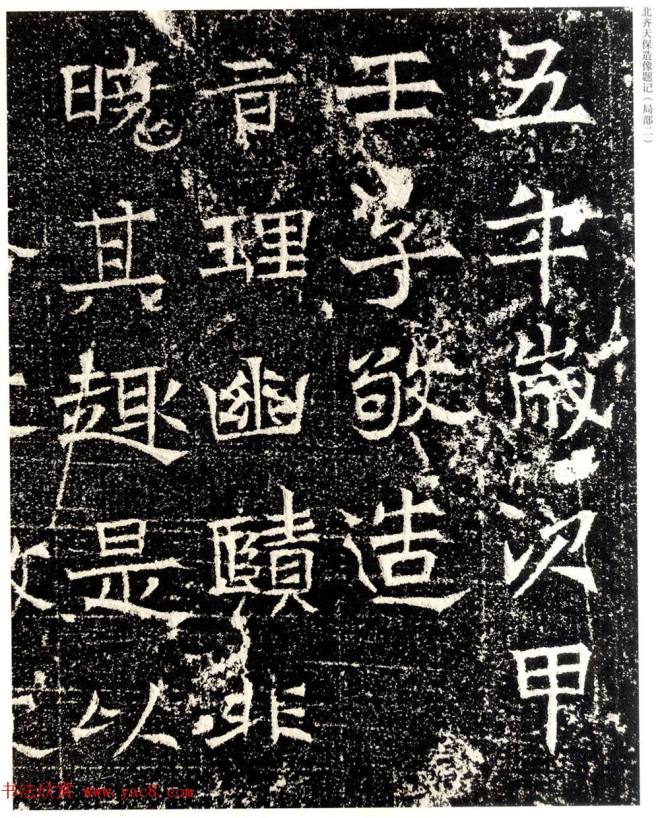 北齐天保造像题记（局部二）
五年歲次甲
壬子敬造
音理幽賾非
曉其趣是以
书法欣赏 www.yac8.com